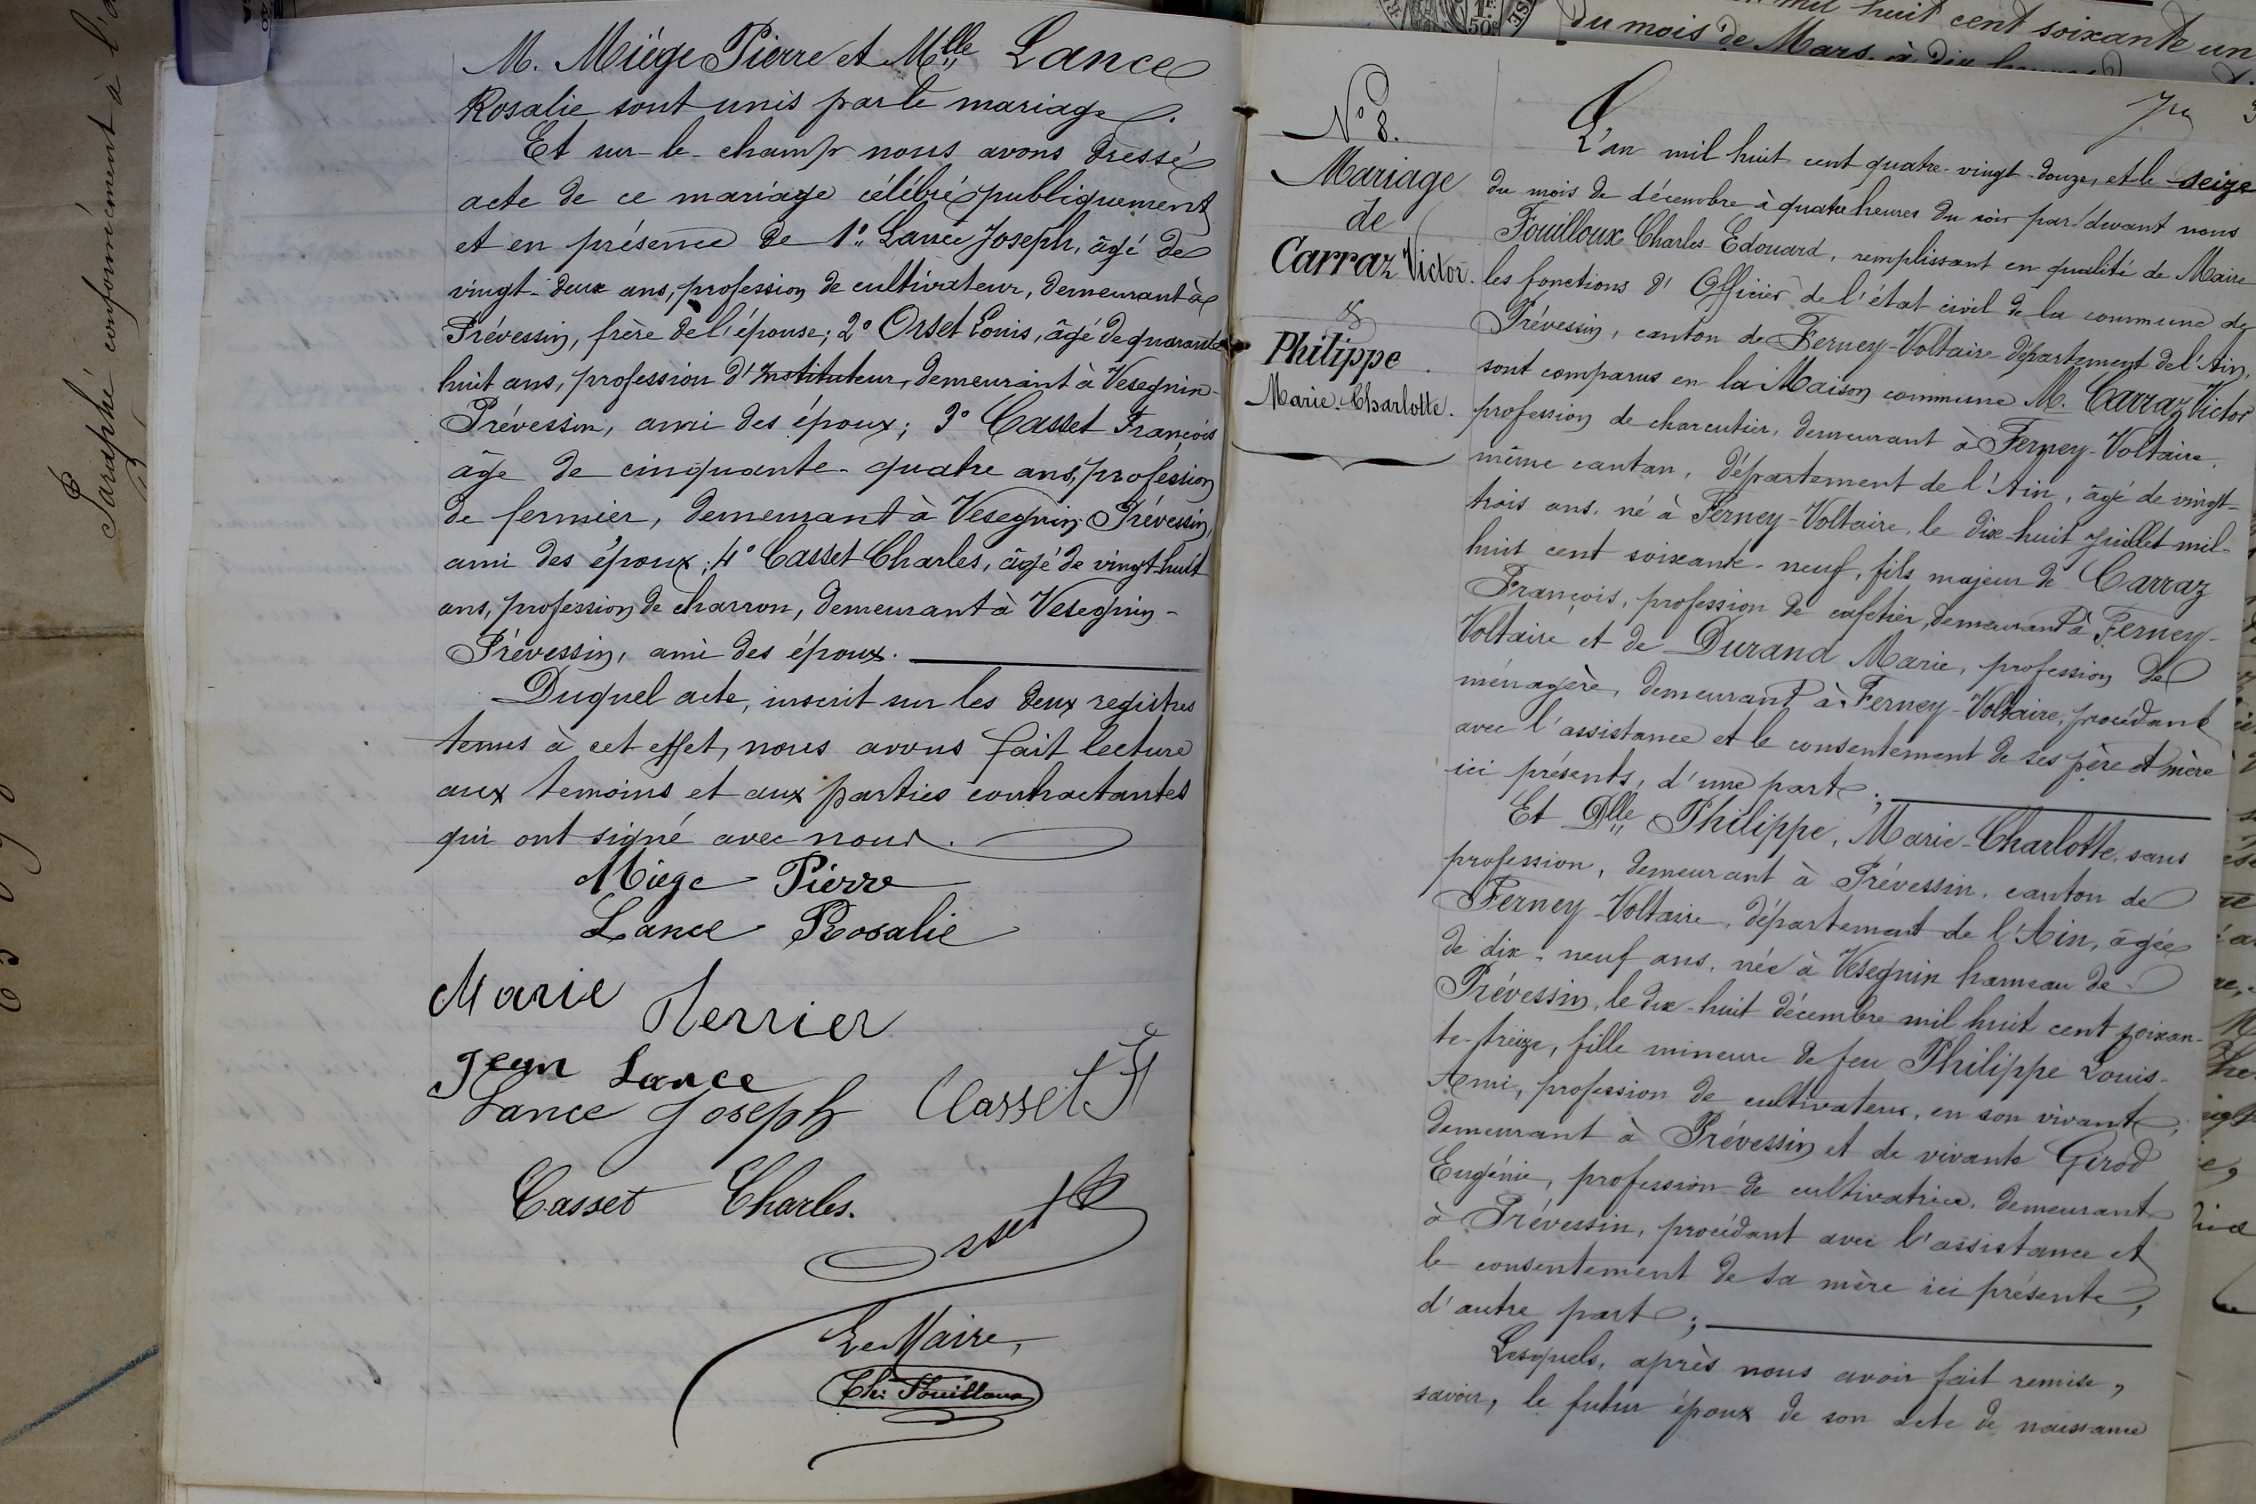 Paraphé conformément à l'a
M. Miège Pierre et Mlle Lance
Rosalie sont unis par le mariage.
Et sur-le-champ nous avons dressé
acte de ce mariage célébré publiquement
et en présence de 1° Lance Joseph, âgé de
vingt-deux ans, profession de cultivateur, demeurant à
Prévessin, frère de l'épouse; 2° Orset Louis, âgé de quarante
huit ans, profession d'Instituteur, demeurant à Vesegnin-
Prévessin, ami des époux; 3° Casset François
âge de cinquante-quatre ans, profession
de fermier, demeurant à Vesegnin-Prévessin,
ami des époux; 4° Casset Charles, âgé de vingt huit
ans, profession de charron, demeurant à Vesegnin-
Prévessin, ami des époux.
Duquel acte, inscrit sur les deux registres
tenus à cet effet, nous avons fait lecture
aux temoins et aux parties contractantes
qui ont signé avec nous.
Miège Pierre
Lance Rosalie
Marie
Jean Lance
Lance Joseph Casset
Casset Charles.
Le Maire,
Ch: Fouilloux
mil huit cent soixante un
du mois de Mars, à dix heures
N° 8.
Mariage
de
Carraz Victor.
&
Philippe
Marie-Charlotte.
L'an mil huit cent quatre-vingt-douze, et le seize
du mois de décembre à quatre heures du soir par devant nous
Fouilloux Charles Edouard, remplissant en qualité de Maire
les fonctions d'Officier de l'état civil de la commune de
Prévessin, canton de Ferney-Voltaire département de l'Ain,
sont comparus en la Maison commune M. Carraz Victor
profession de charcutier, demeurant à Ferney-Voltaire,
même canton, département de l'Ain, âgé de vingt-
trois ans, né à Ferney-Voltaire, le dix-huit juillet mil-
huit cent soixante-neuf, fils majeur de Carraz
François, profession de cafetier, demeurant à Ferney-
Voltaire et de Durand Marie, profession de
ménagère, demeurant à Ferney-Voltaire, procédant
avec l'assistance et le consentement de ses père et mère
ici présents, d'une part;
Et Dlle Philippe, Marie-Charlotte, sans
profession, demeurant à Prévessin, canton de
Ferney-Voltaire, département de l'Ain, âgée
de dix-neuf ans, née à Vesegnin hameau de
Prévessin, le dix-huit décembre mil huit cent soixan-
te-treize, fille mineure de feu Philippe Louis-
Ami, profession de cultivateur, en son vivant,
demeurant à Prévessin et de vivante Girod
Eugénie, profession de cultivatrice, demeurant
à Prévessin, procédant avec l'assistance et
le consentement de sa mère ici présente,
d'autre part;
Lesquels, après nous avoir fait remise,
savoir, le futur époux de son acte de naissance